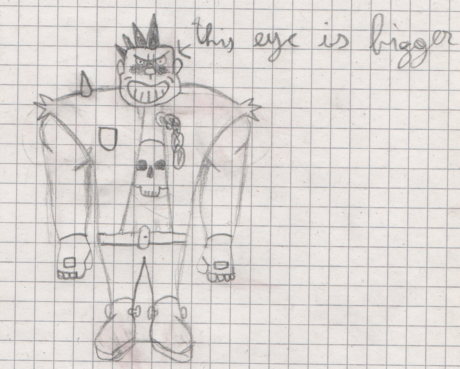 this eye is bigger